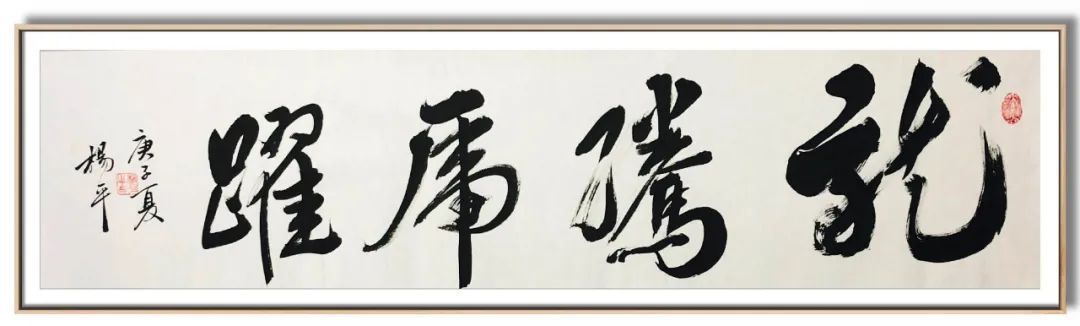 龍騰虎躍
庚子夏
楊平